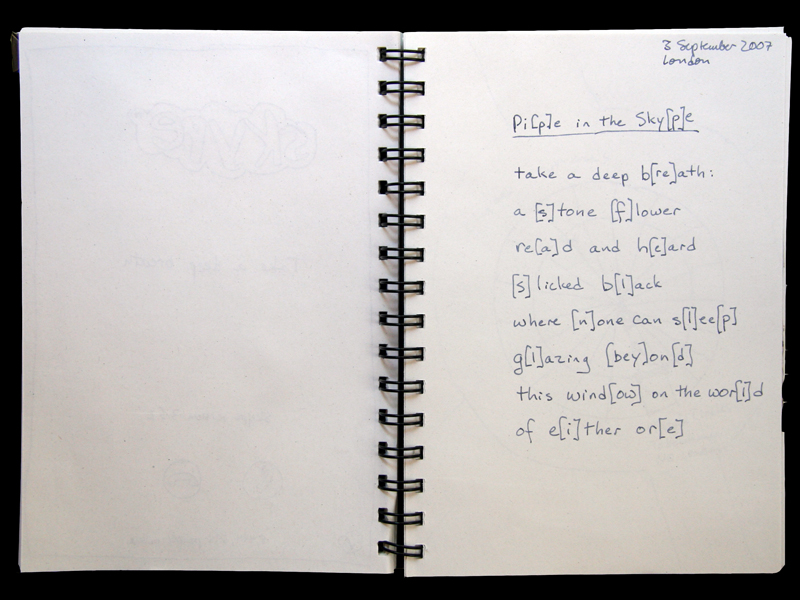 3 September 2007
London
Pi[p]e in the Sky[p]e
take a deep b[re]ath:
a [s]tone [f]lower
re[a]d and h[e]ard
[s]licked b[l]ack
where [n]one can s[l]ee[p]
g[l]azing [bey]on[d]
this wind[ow] on the wor[l]d
of e[i]ther or[e]